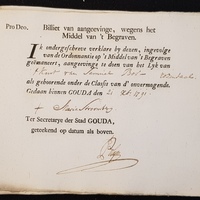 Pro Deo. Billiet van aangeevinge, wegens het
Middel van 't Begraven.
IK ondergeschreve verklare by dezen, ingevolge
van de Ordonnantie op 't Middel van 't Begraven
geëmaneert, aangeevinge te doen van het Lyk van
kint van Samuel Bos
als gehoorende onder de Classis van d' onvermogende.
Gedaan binnen GOUDA den 21
Ter Secretarye der Stad GOUDA,
geteekend op datum als boven.